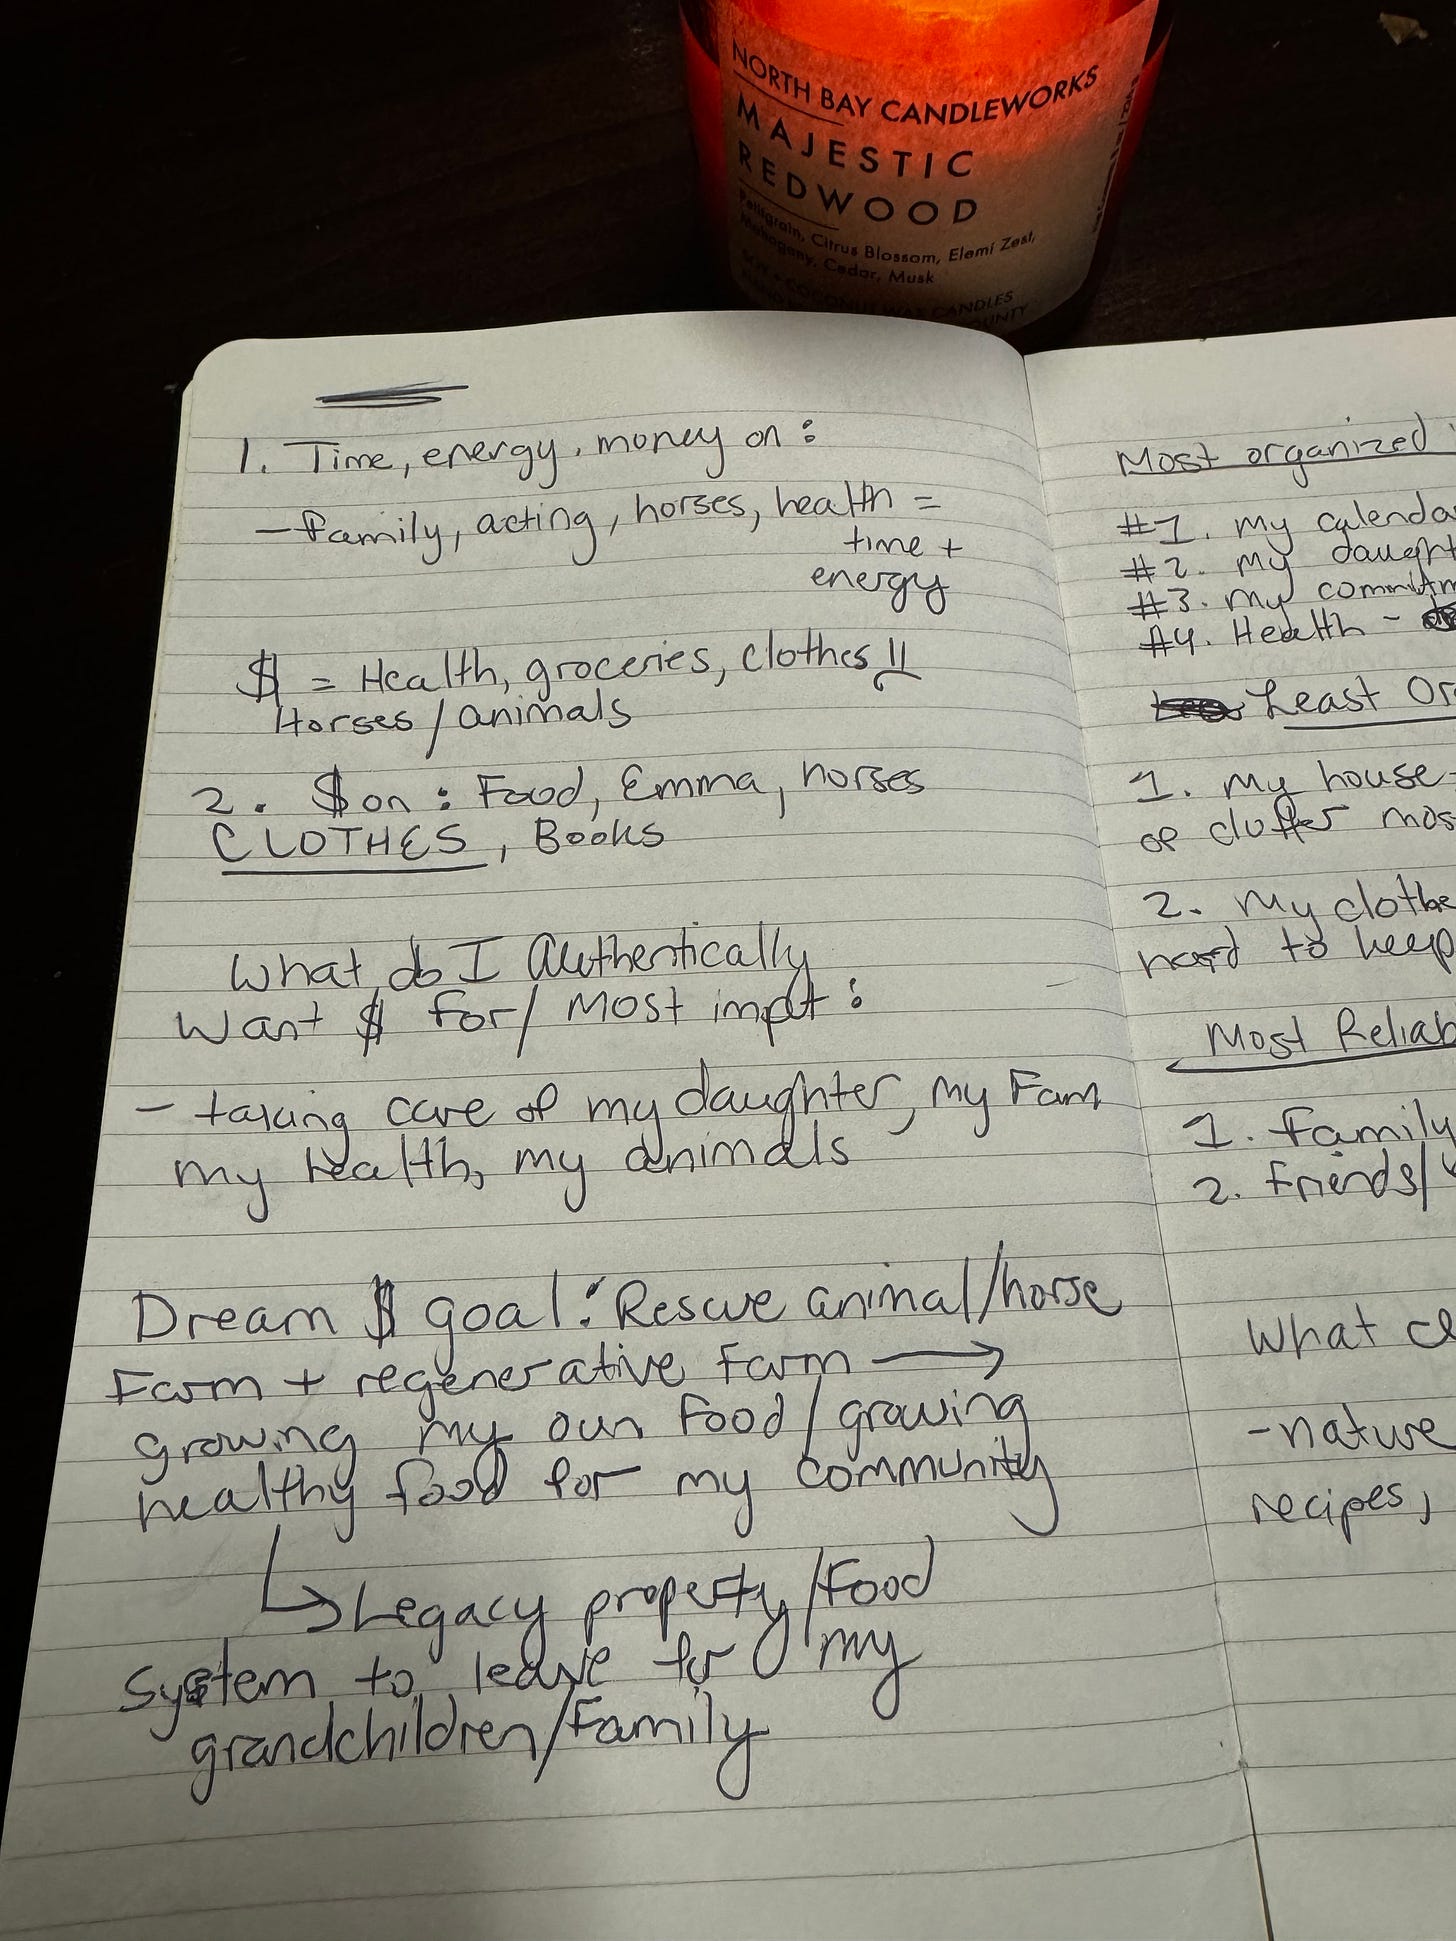 NORTH BAY CANDLEWORKS
MAJESTIC
REDWOOD
Petitgrain, Citrus Blossom, Elemi Zest,
Mahogany, Cedar, Musk
COCONUT WAX CANDLES
1. Time, energy, money on:
- family, acting, horses, health =
time +
energy
$ = Health, groceries, clothes!!
Horses/animals
2. $ on: Food, Emma, horses
CLOTHES, Books
What do I Authentically
Want $ for/ most impt:
- taking care of my daughter, my Fam
my health, my animals
Dream $ goal: Rescue animal/horse
Farm + regenerative Farm →
growing my own food/growing
healthy food for my community
↳ Legacy property/Food
System to leave for my
grandchildren/Family
Most organized
#1. My calenda
#2. My daught
#3. My commitm
#4. Health -
Least Or
1. My house-
of clutter mos
2. My clothe
hard to keep
Most Reliab
1. Family
2. Friends/
What
- nature
recipes,